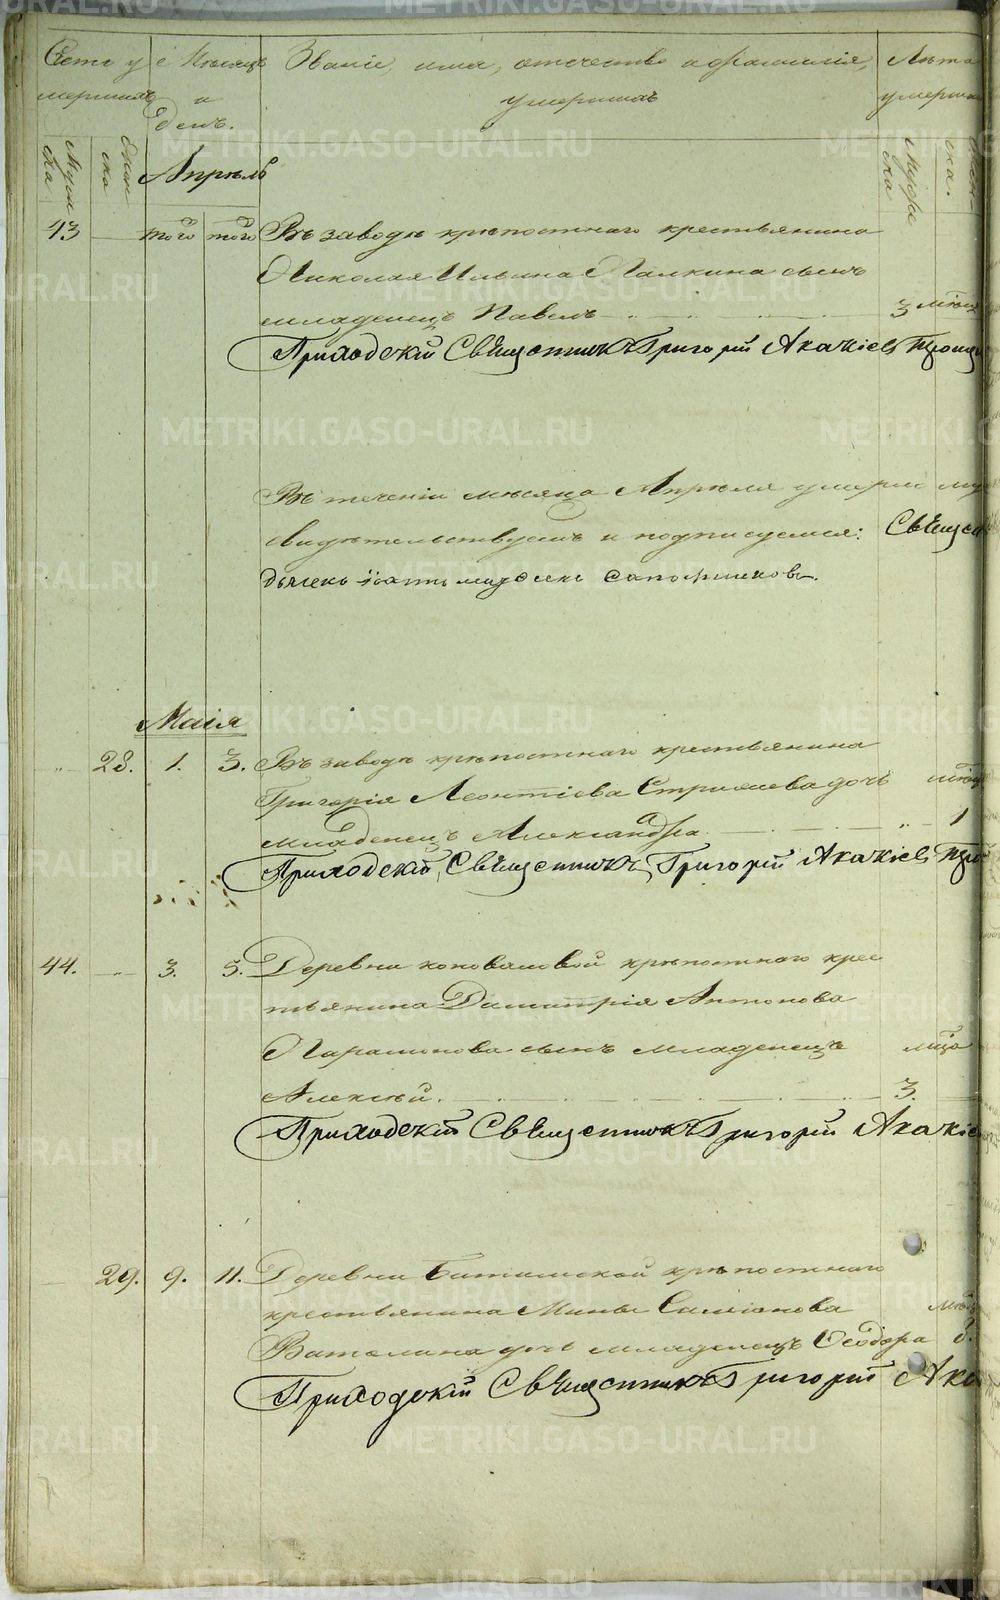 Счетъ у
мершихъ
Мужес
ка
Женс
ка
Месяцъ
и
день.
Званіе, имя, отчество и фамилія,
умершихъ
Лѣта
умерши
Муже
ска
Жен
ска.
Апрѣль
43 — того того Въ заводѣ крѣпостнаго крестьянина
Николая Ильина Палкина сынъ
младенецъ Павелъ 3 мѣсяц
Приходскій Священникъ Григорій Акакіевъ
Въ теченіи месяца Апрѣля умерли му
свидѣтельствуемъ и подписуемся: Священ
дьячекъ Сапожниковъ.
Маія
28. 1. 3. Въ заводѣ крѣпостнаго крестьянина
Григорія Леонтіева дочь
младенецъ Александра 1
Приходскій Священникъ Григорій Акакіевъ
44. 3. 5. Деревни Коноваловой крѣпостнаго крес
тьянина Димитрія Антонова
Парамонова сынъ младенецъ мцъ
Алексѣй. 3.
Приходскій Священникъ Григорій Акакіе
29. 9. 11. Деревни крѣпостнаго
крестьянина Мины Симіонова
Ваталина дочь младенецъ Ѳеодора
Приходскій Священникъ Григорій Ака
METRIKI.GASO-URAL.RU